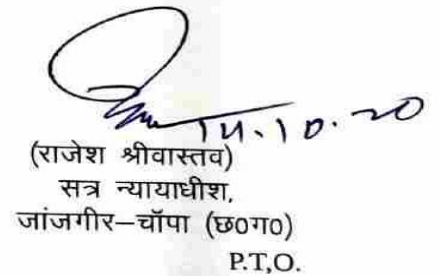 14.10.20
(राजेश श्रीवास्तव)
सत्र न्यायाधीश,
जांजगीर–चॉपा (छ०ग०)
P.T,O.